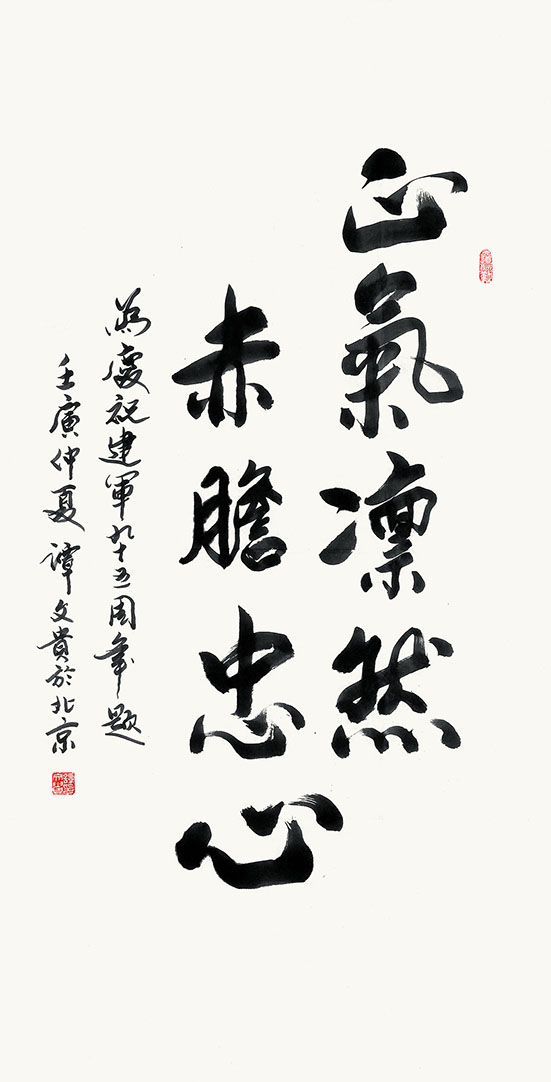 正氣凛然
赤膽忠心
為慶祝建軍九十五周年題
壬寅仲夏 譚文貴於北京